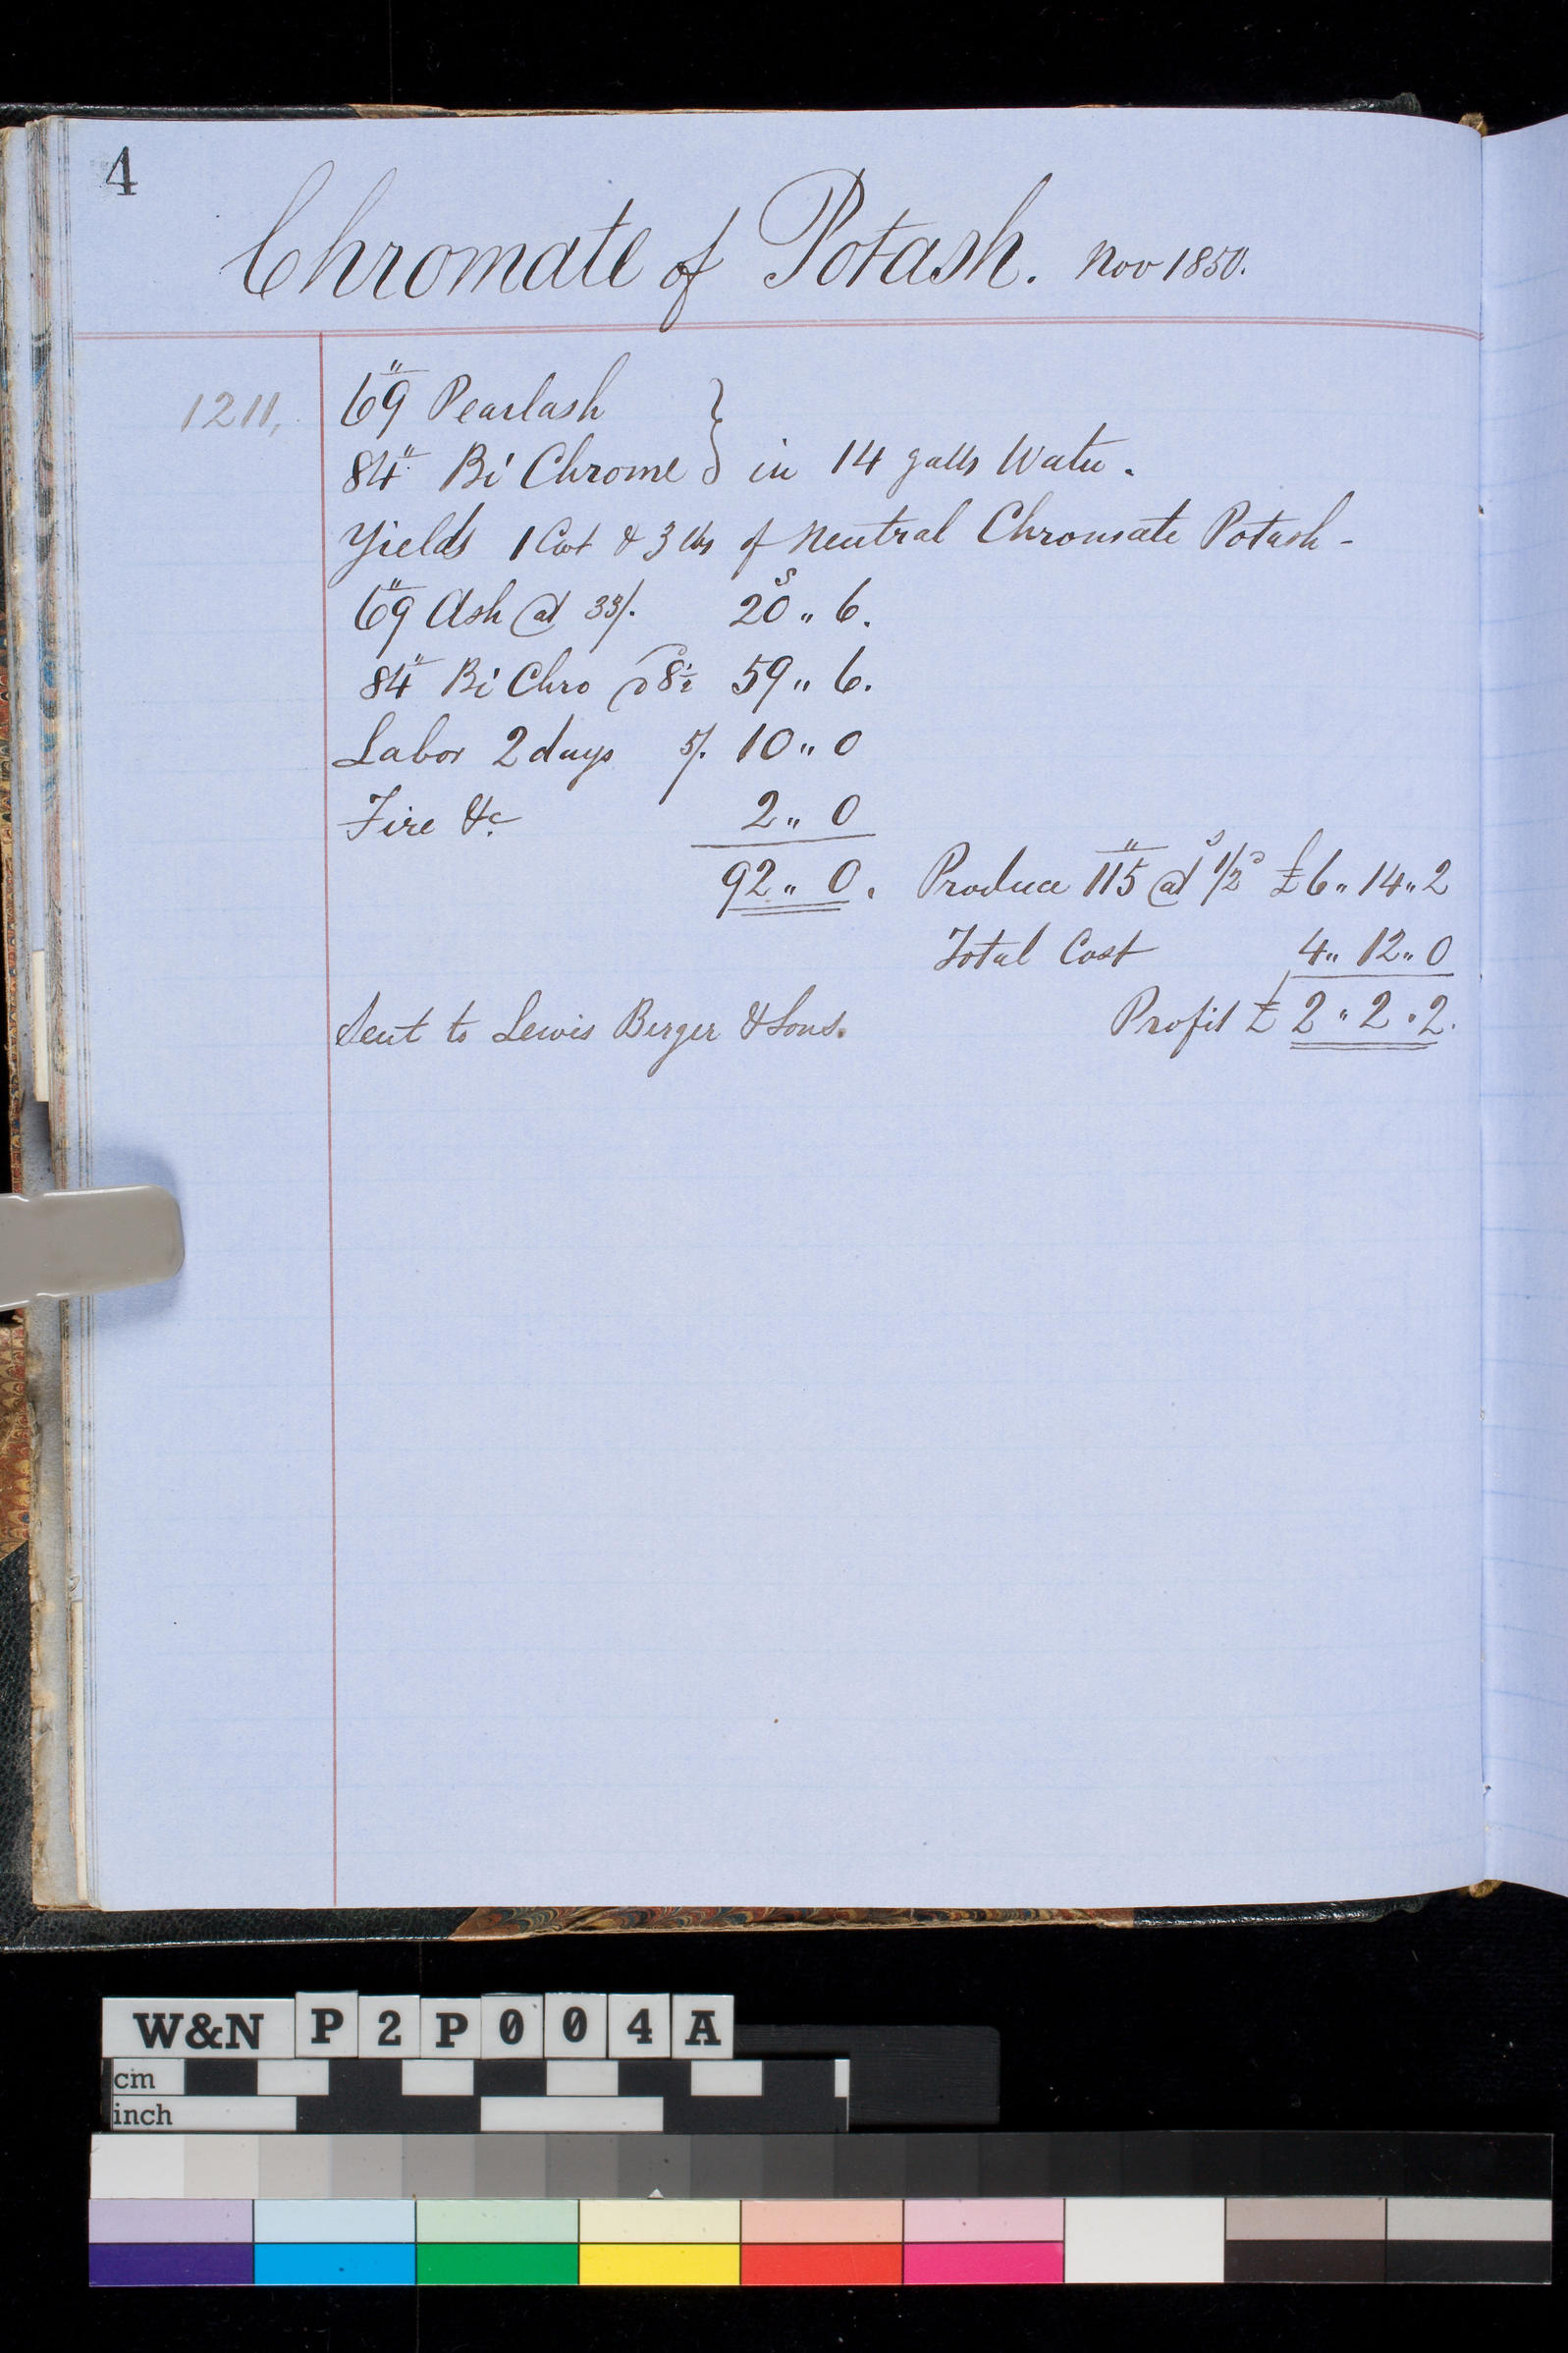 4
Chromate of Potash. Nov 1850.
1211,
69" Pearlash
84" Bi Chrome } in 14 galls Water.
Yields 1 Cwt & 3 lbs of Neutral Chromate Potash -
69" Ash @ 33/. 20s " 6.
84" Bi Chro @ 8½ 59 " 6.
Labor 2 days 5/. 10 " 0
Fire &c 2 " 0
92 " 0. Produce 115" @ 1/2 £6 " 14 " 2
Total Cost 4 " 12 " 0
Sent to Lewis Berger & Sons. Profit £ 2 " 2 " 2.
W&N P2P004A
cm
inch